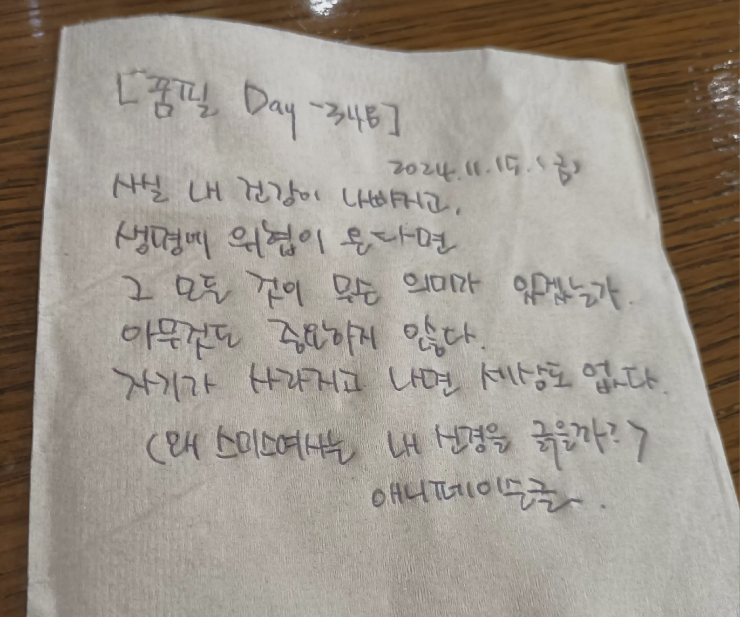 [품필 Day -345]
2024.11.15.(금)
사실 내 건강이 나빠지고,
생명에 위협이 온다면
그 모든 것이 무슨 의미가 있겠는가.
아무것도 중요하지 않다.
자기가 사라지고 나면 세상도 없다.
(왜 스미스여사는 내 신경을 긁을까?)
애니페이슨콜.